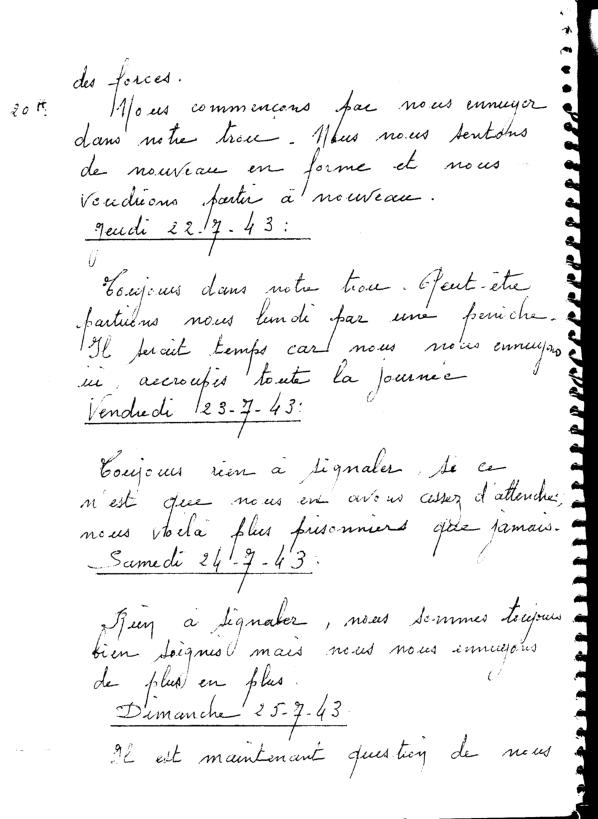 des forces.
20 Kt. Nous commençons par nous ennuyer
dans notre trou. Nous nous sentons
de nouveau en forme et nous
voudrions partir à nouveau.
Jeudi 22-7-43:
Toujours dans notre trou. Peut-être
partirions nous lundi par une péniche.
Il serait temps car nous nous ennuyons
ici, accroupis toute la journée
Vendredi 23-7-43:
Toujours rien à signaler, si ce
n'est que nous en avons assez d'attendre,
nous voilà plus prisonniers que jamais.
Samedi 24-7-43:
Rien à signaler, nous sommes toujours
bien soignés mais nous nous ennuyons
de plus en plus.
Dimanche 25-7-43
Il est maintenant question de nous